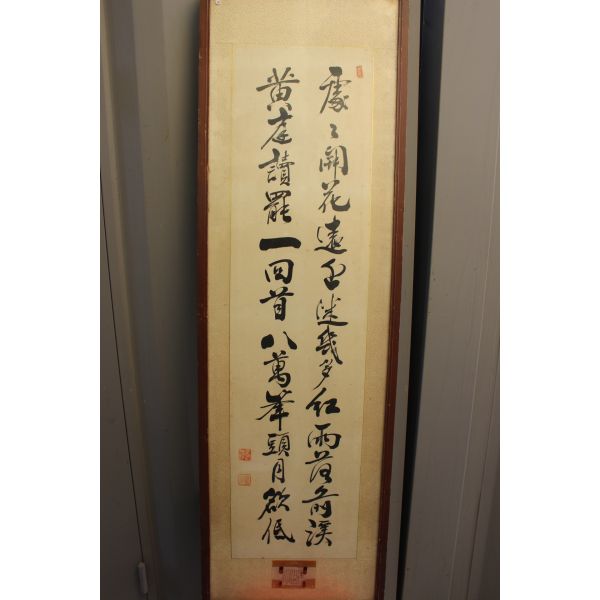 處々開花遠色迷幾多紅雨落前溪
黃庭讀罷一回首八萬峯頭月欲低